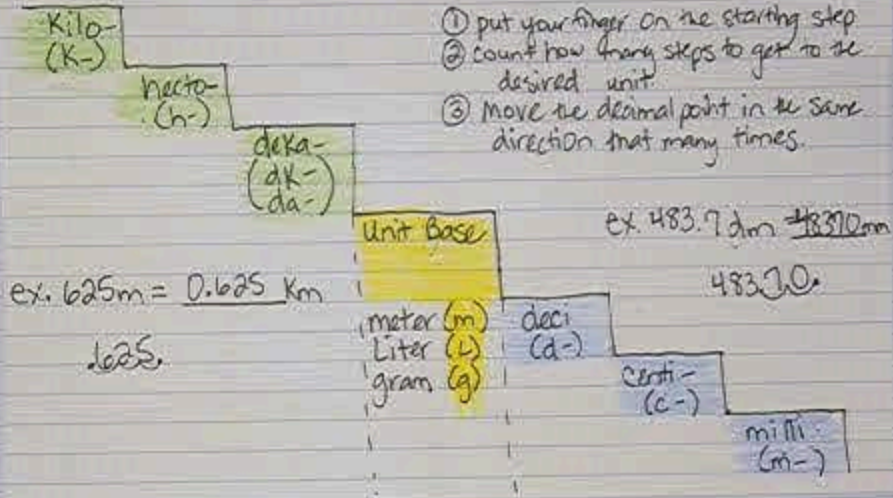 Kilo-
(K-)
hecto-
(h-)
deka-
(dk-
da-)
Unit Base
meter (m)
Liter (L)
gram (g)
deci
(d-)
centi-
(c-)
milli
(m-)
① put your finger on the starting step
② count how many steps to get to the
desired unit
③ Move the decimal point in the same
direction that many times.
ex. 483.7 dm = 48370 mm
48370.
ex. 625m = 0.625 Km
.625.